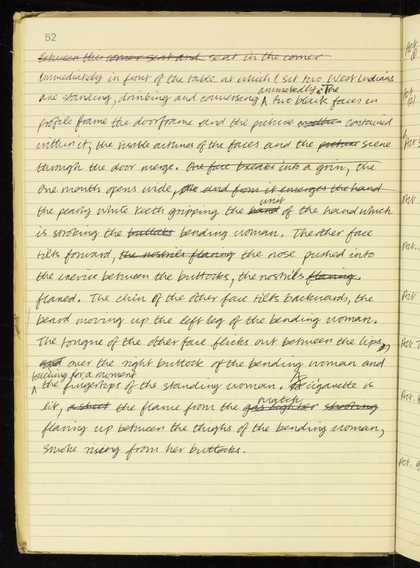 52
between the corner seat and seat in the corner
Immediately in front of the table at which I sit two West Indians
animatedly. The
are standing, drinking and conversing two black faces in
profile frame the doorframe and the picture contained
within it, the visible outlines of the faces and the picture scene
through the door merge. One face breaks into a grin, the
One mouth opens wide, the and from it emerges the hand
wrist
the pearly white teeth gripping the hand of the hand which
is stroking the buttocks bending woman. The other face
tilts forward, the nostrils flaring the nose pushed into
the crevice between the buttocks, the nostrils flaring.
flared. The chin of the other face tilts backwards, the
beard moving up the left leg of the bending woman.
The tongue of the other face flicks out between the lips,
and over the right buttock of the bending woman and
touching for a moment
the fingertips of the standing woman. A cigarette is
match
lit, a shoot the flame from the gas lighter shooting
flaring up between the thighs of the bending woman,
smoke rising from her buttocks.